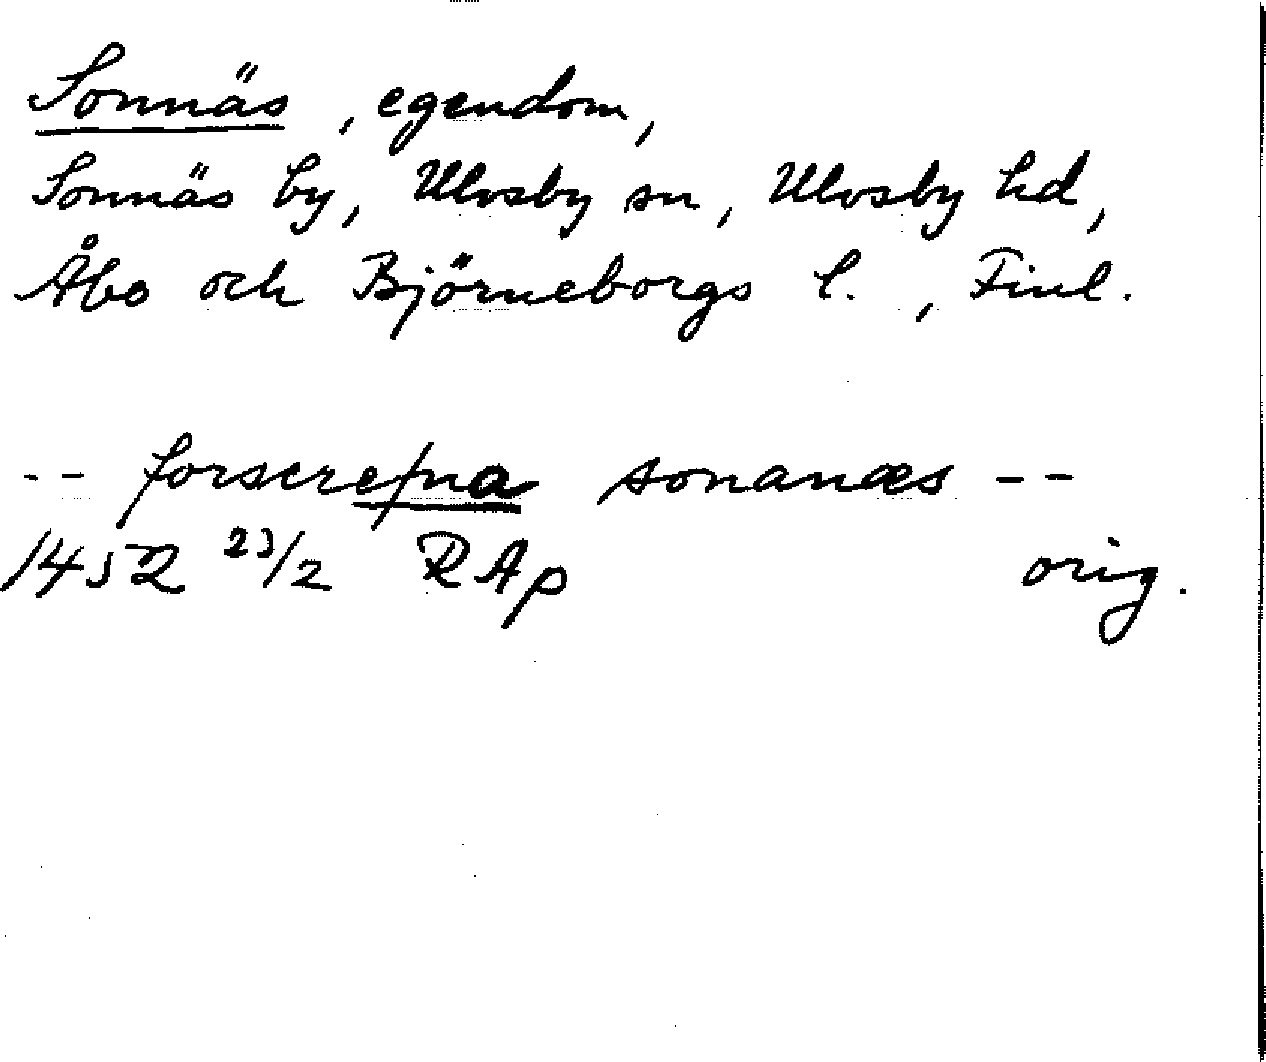 Sonnäs, egendom,
Sonnäs by, Ulvsby sn, Ulvsby hd,
Åbo och Björneborgs l., Finl.
-- forscrefna sonanæs --
1452 23/2 RAp orig.